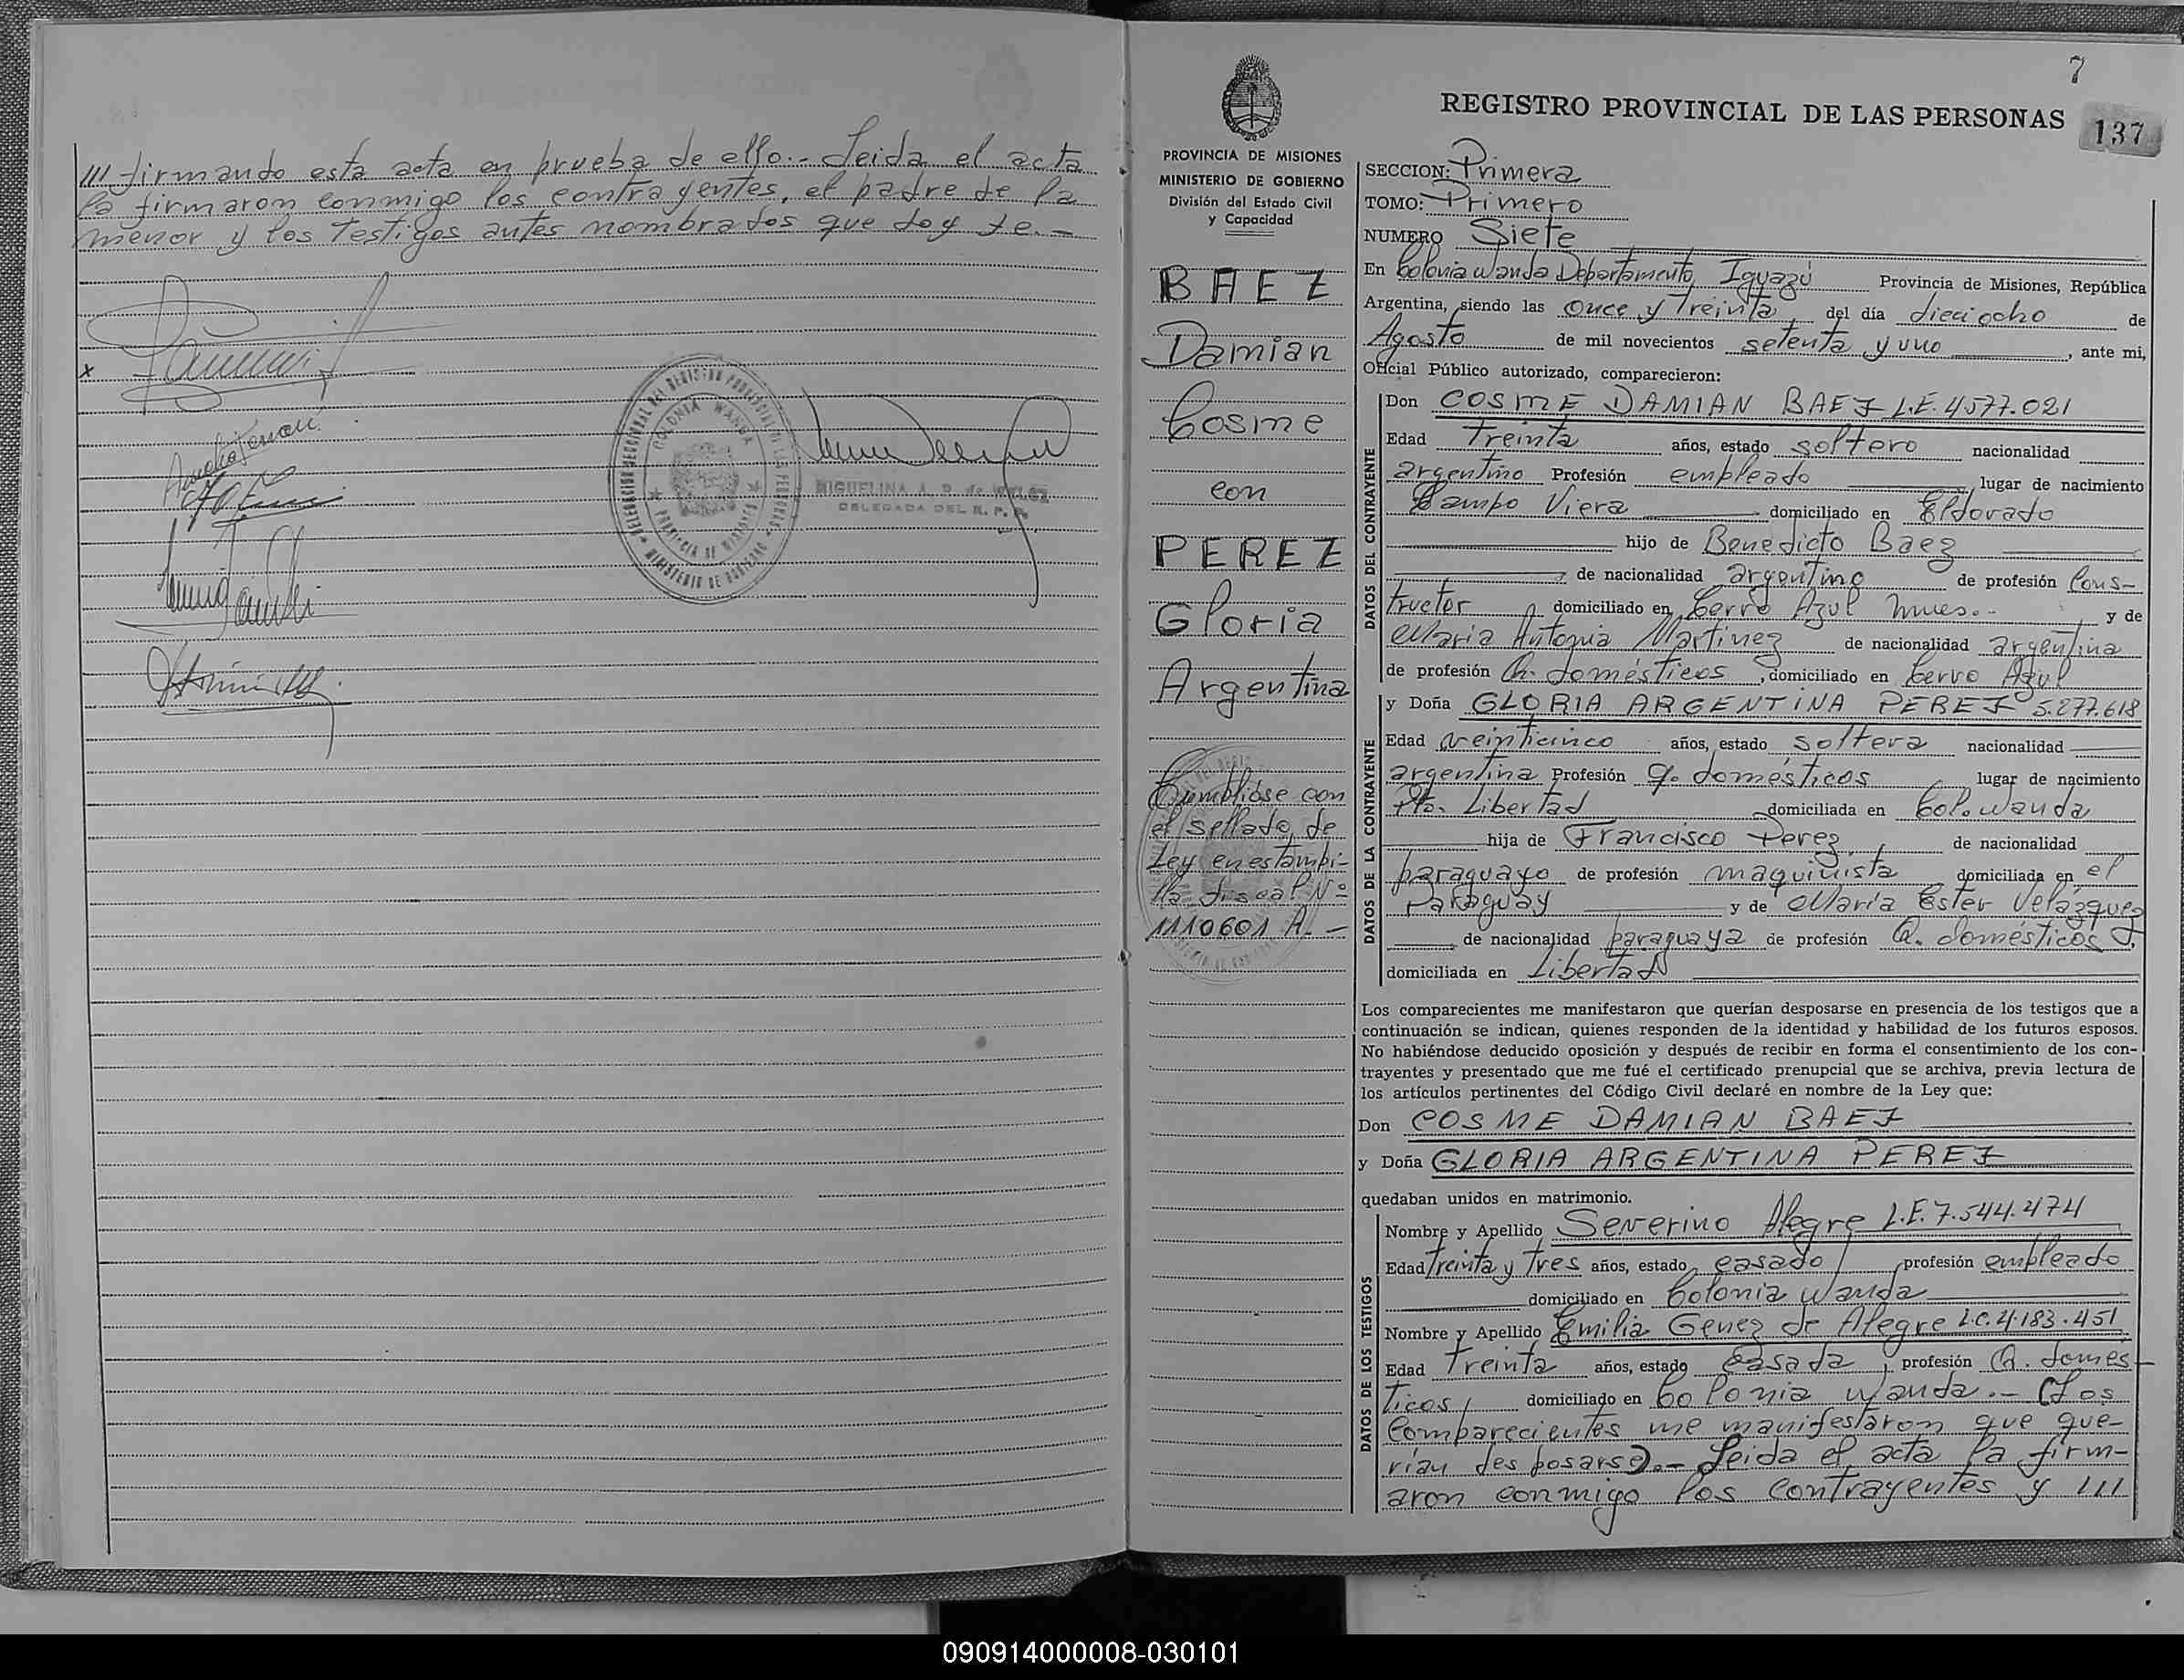 /// firmando esta acta en prueba de ello.- Leida el acta
la firmaron conmigo los contrayentes, el padre de la
menor y los testigos antes nombrados que doy fe.-
x
COLONIA WANDA
MIGUELINA A. D. de
DELEGADA DEL R. P. P.
7
REGISTRO PROVINCIAL DE LAS PERSONAS
137
PROVINCIA DE MISIONES
MINISTERIO DE GOBIERNO
División del Estado Civil
y Capacidad
BAEZ
Damian
Cosme
con
PEREZ
Gloria
Argentina
Cumplióse con
el sellado de
Ley en estampi-
lla fiscal Nº
1110601 A.-
SECCION: Primera
TOMO: Primero
NUMERO Siete
En Colonia Wanda Departamento Iguazú Provincia de Misiones, República
Argentina, siendo las Once y Treinta del día dieciocho de
Agosto de mil novecientos setenta y uno, ante mi,
Oficial Público autorizado, comparecieron:
DATOS DEL CONTRAYENTE
Don COSME DAMIAN BAEZ L.E. 4.577.021
Edad Treinta años, estado soltero nacionalidad
argentino Profesión empleado lugar de nacimiento
Campo Viera domiciliado en Eldorado
hijo de Benedicto Baez
de nacionalidad argentino de profesión Cons-
tructor domiciliado en Cerro Azul mnes.- y de
Maria Antonia Martinez de nacionalidad argentina
de profesión Q. domésticos, domiciliado en Cerro Azul
DATOS DE LA CONTRAYENTE
y Doña GLORIA ARGENTINA PEREZ 5.277.618
Edad Veinticinco años, estado soltera nacionalidad
argentina Profesión q. domésticos lugar de nacimiento
Pto. Libertad domiciliada en Col. Wanda
hija de Francisco Perez, de nacionalidad
paraguayo de profesión maquinista domiciliada en el
Paraguay y de Maria Ester Velazquez
de nacionalidad paraguaya de profesión Q. domésticos
domiciliada en Libertad
Los comparecientes me manifestaron que querían desposarse en presencia de los testigos que a
continuación se indican, quienes responden de la identidad y habilidad de los futuros esposos.
No habiéndose deducido oposición y después de recibir en forma el consentimiento de los con-
trayentes y presentado que me fué el certificado prenupcial que se archiva, previa lectura de
los artículos pertinentes del Código Civil declaré en nombre de la Ley que:
Don COSME DAMIAN BAEZ
y Doña GLORIA ARGENTINA PEREZ
quedaban unidos en matrimonio.
DATOS DE LOS TESTIGOS
Nombre y Apellido Severino Alegre L.E. 7.544.474
Edad Treinta y Tres años, estado casado profesión empleado
domiciliado en Colonia Wanda
Nombre y Apellido Emilia Genez de Alegre L.C. 4.183.451
Edad Treinta años, estado Casada, profesión Q. domés-
ticos, domiciliado en Colonia Wanda.- (Los
Comparecientes me manifestaron que que-
rían desposarse).- Leida el acta la firm-
aron conmigo los Contrayentes y ///
090914000008-030101